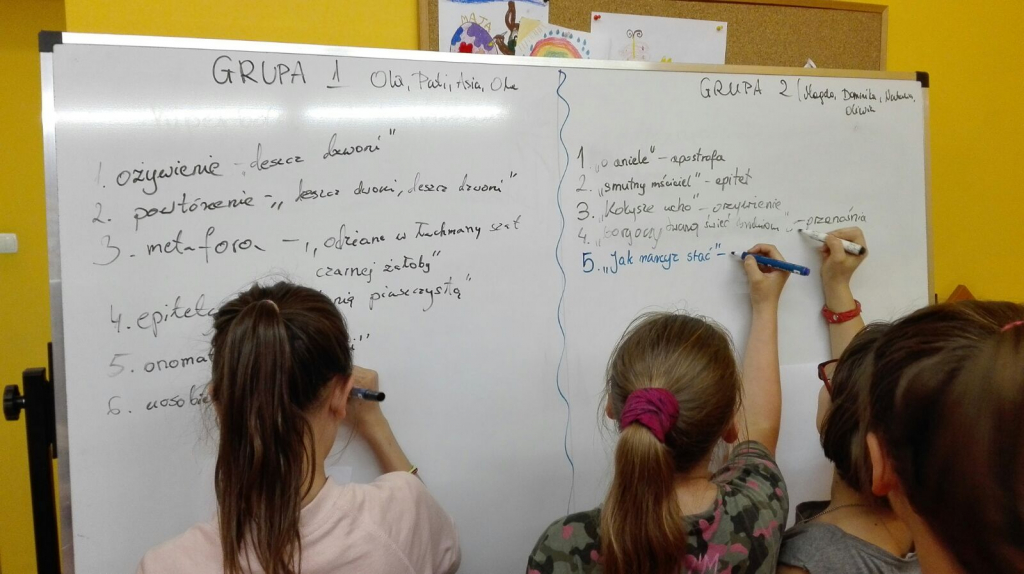 MATA
GRUPA 1 Ola, Pati, Asia, Ola
1. ożywienie - „deszcz dzwoni"
2. powtórzenie - „deszcz dzwoni, deszcz dzwoni"
3. metafora - „odziane w łachmany szat
czarnej żałoby"
4. epitety piaszczystą"
5. onomat
6. uosobie
GRUPA 2 Magda, Dominika, Natalia,
Oliwia
1. „o aniele" - apostrofa
2. „smutny mściciel" - epitet
3. „Kołysze ucho" - ożywienie
4. świeć - przenośnia
5. „Jak marzyc stać" -